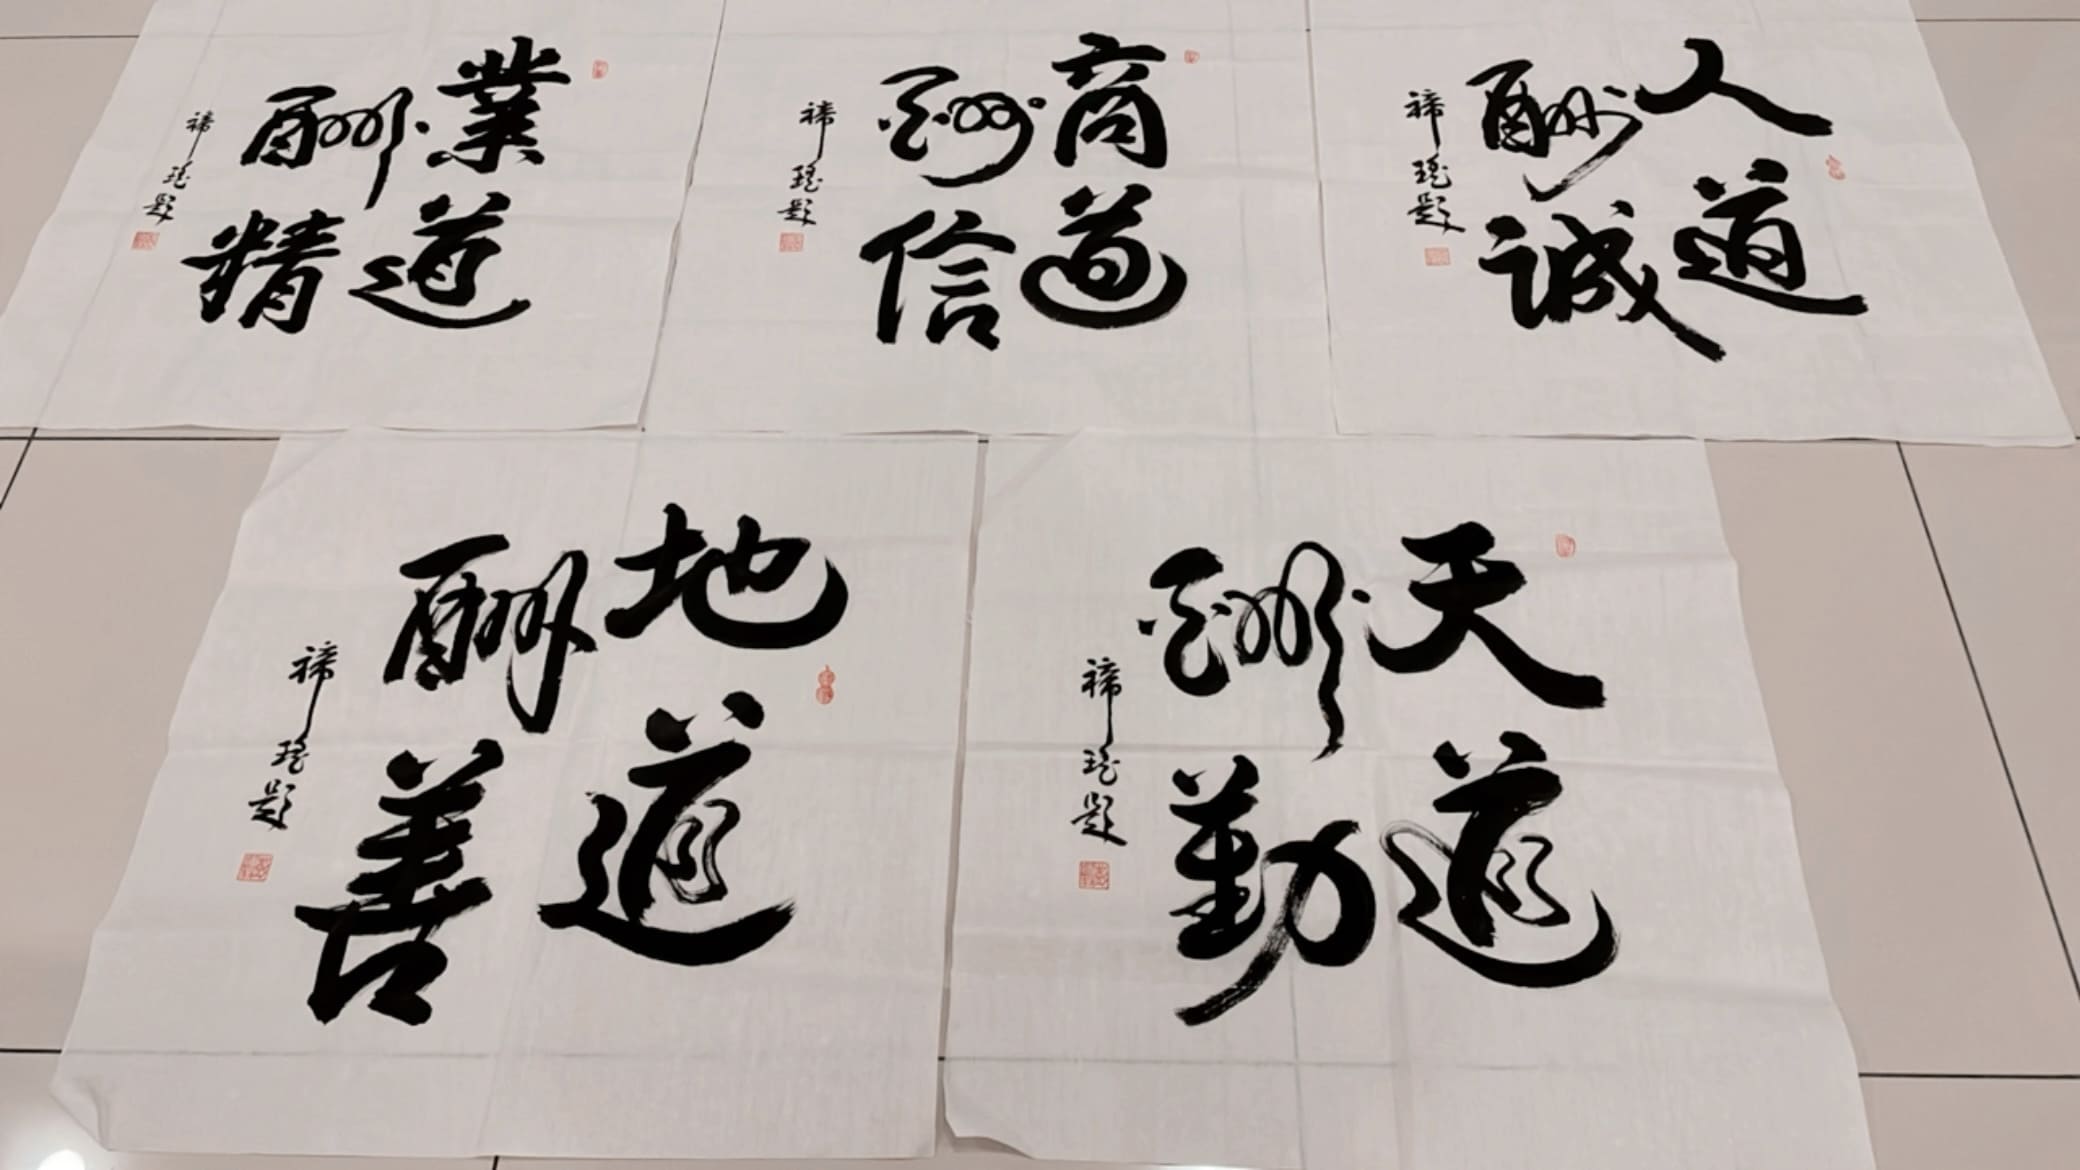 業道
酬精
禘瑤題
商道
酬信
禘瑤題
人道
酬誠
禘瑤題
地道
酬善
禘瑤題
天道
酬勤
禘瑤題